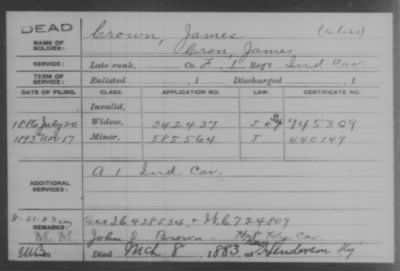 DEAD
NAME OF SOLDIER: Crown, James (alias)
Cron, James
SERVICE: Late rank, Co. F, 1 Reg't Ind Cav.
TERM OF SERVICE: Enlisted , 1 Discharged , 1
DATE OF FILING. CLASS. APPLICATION NO. LAW. CERTIFICATE NO.
Invalid,
1886 July 20 Widow, 342437 J 945309
1893 Nov 17 Minor, 585564 J 440149
ADDITIONAL SERVICES: A 1 Ind. Cav.
REMARKS: 8-21-23 See 26428534 & W.C. 724809
M. M. John J. Brown - Ky Cav
Died Mch 8, 1883, at Henderson Ky